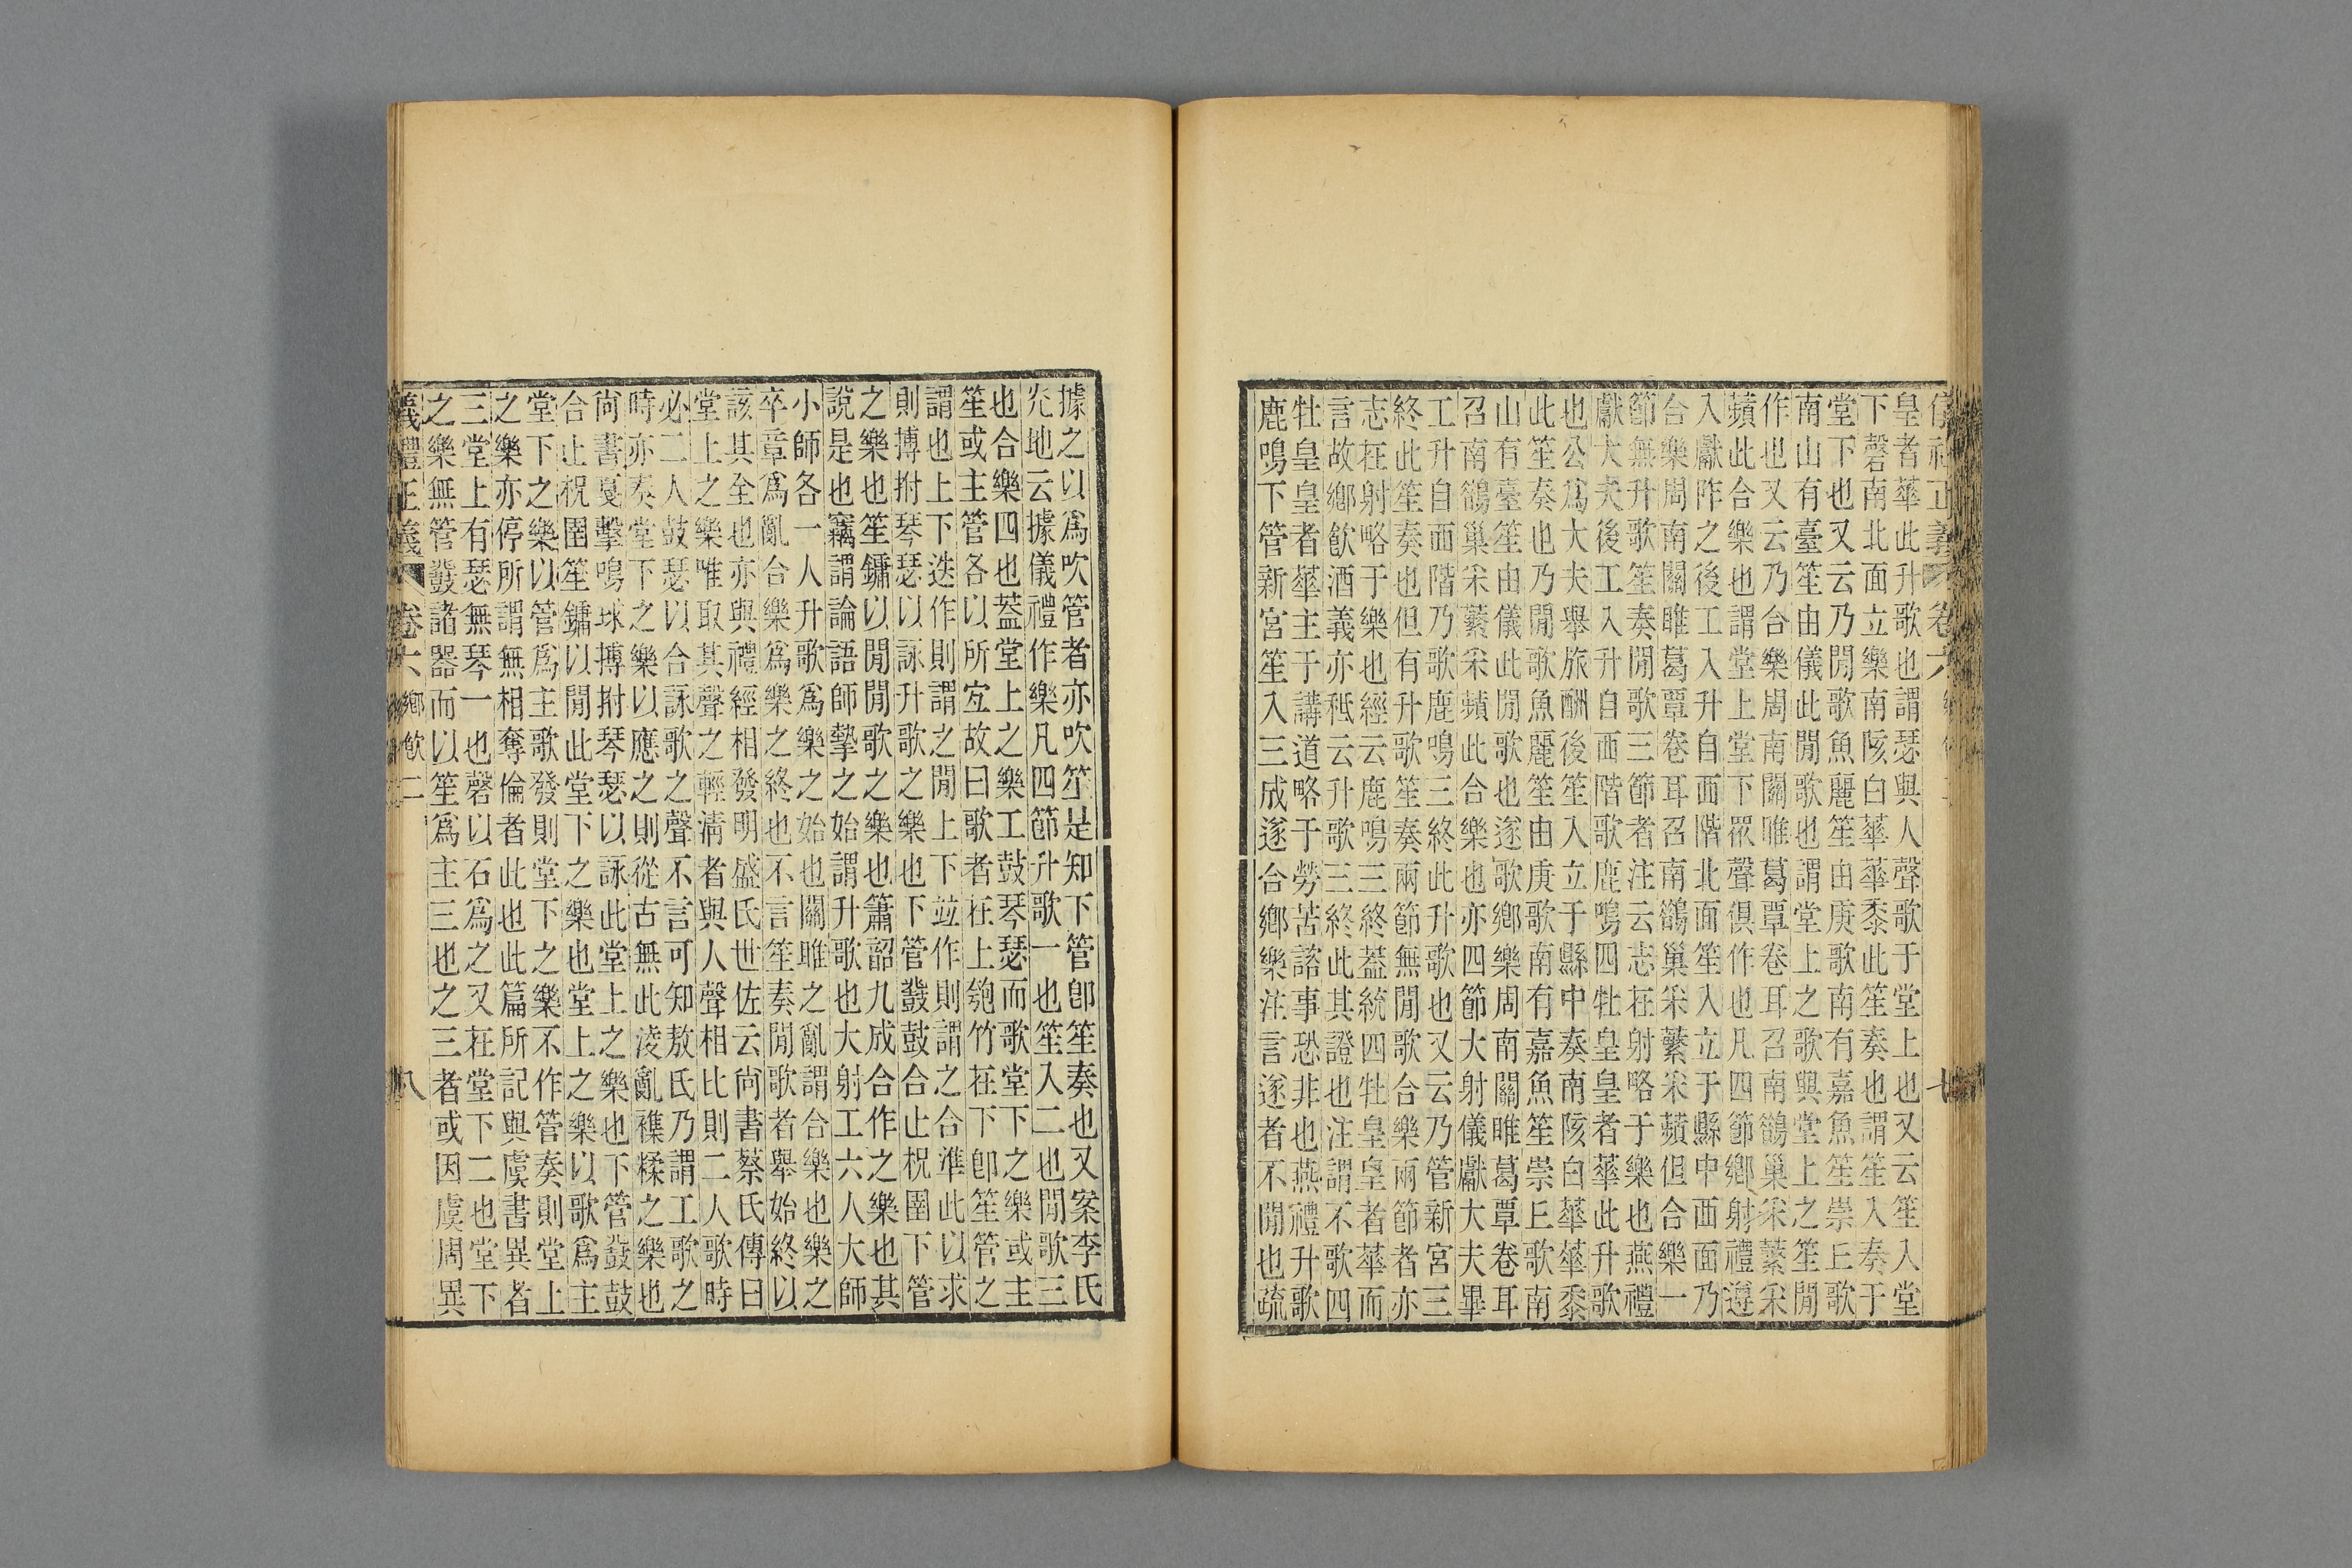 皇者華此升歌也謂瑟與人聲歌于堂上也又云笙入堂
下磬南北面立樂南陔白華華黍此笙奏也謂笙入奏于
堂下也又云乃閒歌魚麗笙由庚歌南有嘉魚笙崇丘歌
南山有臺笙由儀此閒歌也謂堂上之歌與堂上之笙閒
作也又云乃合樂周南關雎葛覃卷耳召南鵲巢采蘩采
蘋此合樂也謂堂上堂下眾聲俱作也凡四節鄉射禮遵
入獻阼之後工入升自西階北面笙入立于縣中西面乃
合樂周南關雎葛覃卷耳召南鵲巢采蘩采蘋但合樂一
節無升歌笙奏閒歌三節者注云志在射略于樂也燕禮
獻大夫後工入升自西階歌鹿鳴四牡皇皇者華此升歌
也公為大夫舉旅酬後笙入立于縣中奏南陔白華華黍
此笙奏也乃閒歌魚麗笙由庚歌南有嘉魚笙崇丘歌南
山有臺笙由儀此閒歌也遂歌鄉樂周南關雎葛覃卷耳
召南鵲巢采蘩采蘋此合樂也亦四節大射儀獻大夫畢
工升自西階乃歌鹿鳴三終此升歌也又云乃管新宮三
終此笙奏也但有升歌笙奏兩節無閒歌合樂兩節者亦
志在射略于樂也經云鹿鳴三終蓋統四牡皇皇者華而
言故鄉飲酒義亦秪云升歌三終此其證也注謂不歌四
牡皇皇者華主于講道略于勞苦諮事恐非也燕禮升歌
鹿鳴下管新宮笙入三成遂合鄉樂注言遂者不閒也疏
據之以爲吹管者亦吹笙是知下管卽笙奏也又案李氏
光地云據儀禮作樂凡四節升歌一也笙入二也閒歌三
也合樂四也蓋堂上之樂工鼓琴瑟而歌堂下之樂或主
笙或主管各以所宜故曰歌者在上匏竹在下卽笙管之
謂也上下迭作則謂之閒上下並作則謂之合準此以求
則搏拊琴瑟以詠升歌之樂也下管鼗鼓合止柷圉下管
之樂也笙鏞以閒閒歌之樂也簫韶九成合作之樂也其
說是也竊謂論語師摯之始謂升歌也大射工六人大師
小師各一人升歌爲樂之始也關雎之亂謂合樂也樂之
卒章爲亂合樂爲樂之終也不言笙奏閒歌者舉始終以
該其全也亦與禮經相發明盛氏世佐云尚書蔡氏傳曰
堂上之樂唯取其聲之輕清者與人聲相比則二人歌時
必二人鼓瑟以合詠歌之聲不言可知敖氏乃謂工歌之
時亦奏堂下之樂以應之則從古無此淩亂襍糅之樂也
尚書戛擊鳴球搏拊琴瑟以詠此堂上之樂也下管鼗鼓
合止柷圉笙鏞以閒此堂下之樂也堂上之樂以歌爲主
堂下之樂以管爲主歌發則堂下之樂不作管奏則堂上
之樂亦停所謂無相奪倫者此也此篇所記與虞書異者
三堂上有瑟無琴一也磬以石爲之又在堂下二也堂下
之樂無管鼗諸器而以笙爲主三也之三者或因虞周異
儀禮正義 卷六 鄉飲二 八